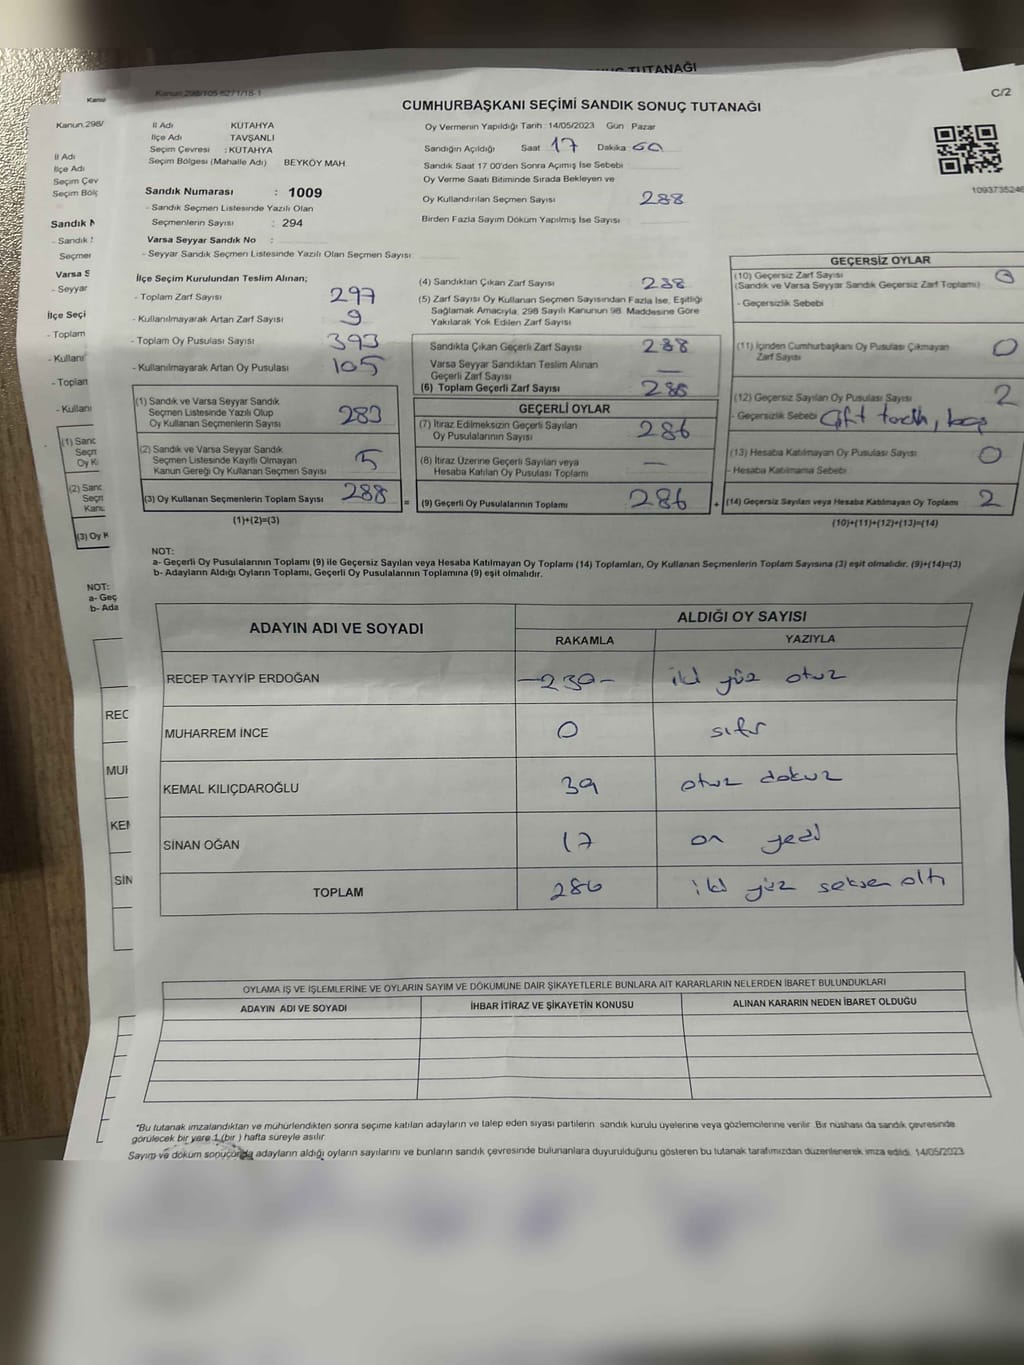 TUTANAĞI
Kanun 298/105-6271/18-1
C/2
CUMHURBAŞKANI SEÇİMİ SANDIK SONUÇ TUTANAĞI
İl Adı KÜTAHYA
İlçe Adı TAVŞANLI
Seçim Çevresi : KÜTAHYA
Seçim Bölgesi (Mahalle Adı) BEYKÖY MAH.
Oy Vermenin Yapıldığı Tarih : 14/05/2023 Gün Pazar
Sandığın Açıldığı Saat 17 Dakika 00
Sandık Saat 17.00'den Sonra Açılmış İse Sebebi
Oy Verme Saati Bitiminde Sırada Bekleyen ve
Oy Kullandırılan Seçmen Sayısı 288
Birden Fazla Sayım Döküm Yapılmış İse Sayısı
1093735246
Sandık Numarası : 1009
- Sandık Seçmen Listesinde Yazılı Olan
Seçmenlerin Sayısı : 294
Varsa Seyyar Sandık No :
- Seyyar Sandık Seçmen Listesinde Yazılı Olan Seçmen Sayısı:
İlçe Seçim Kurulundan Teslim Alınan;
- Toplam Zarf Sayısı 297
- Kullanılmayarak Artan Zarf Sayısı 9
- Toplam Oy Pusulası Sayısı 393
- Kullanılmayarak Artan Oy Pusulası 105
(1) Sandık ve Varsa Seyyar Sandık
Seçmen Listesinde Yazılı Olup
Oy Kullanan Seçmenlerin Sayısı 283
(2) Sandık ve Varsa Seyyar Sandık
Seçmen Listesinde Kayıtlı Olmayan
Kanun Gereği Oy Kullanan Seçmen Sayısı 5
(3) Oy Kullanan Seçmenlerin Toplam Sayısı 288 =
(1)+(2)=(3)
(4) Sandıktan Çıkan Zarf Sayısı 288
(5) Zarf Sayısı Oy Kullanan Seçmen Sayısından Fazla İse, Eşitliği
Sağlamak Amacıyla, 298 Sayılı Kanunun 98. Maddesine Göre
Yakılarak Yok Edilen Zarf Sayısı
Sandıkta Çıkan Geçerli Zarf Sayısı 288
Varsa Seyyar Sandıktan Teslim Alınan
Geçerli Zarf Sayısı —
(6) Toplam Geçerli Zarf Sayısı 288
GEÇERLİ OYLAR
(7) İtiraz Edilmeksizin Geçerli Sayılan
Oy Pusulalarının Sayısı 286
(8) İtiraz Üzerine Geçerli Sayılan veya
Hesaba Katılan Oy Pusulası Toplamı —
(9) Geçerli Oy Pusulalarının Toplamı 286 +
GEÇERSİZ OYLAR
(10) Geçersiz Zarf Sayısı 0
(Sandık ve Varsa Seyyar Sandık Geçersiz Zarf Toplamı)
- Geçersizlik Sebebi
(11) İçinden Cumhurbaşkanı Oy Pusulası Çıkmayan
Zarf Sayısı 0
(12) Geçersiz Sayılan Oy Pusulası Sayısı 2
- Geçersizlik Sebebi Çift tercih, boş
(13) Hesaba Katılmayan Oy Pusulası Sayısı 0
- Hesaba Katılmama Sebebi
(14) Geçersiz Sayılan veya Hesaba Katılmayan Oy Toplamı 2
(10)+(11)+(12)+(13)=(14)
NOT:
a- Geçerli Oy Pusulalarının Toplamı (9) ile Geçersiz Sayılan veya Hesaba Katılmayan Oy Toplamı (14) Toplamları, Oy Kullanan Seçmenlerin Toplam Sayısına (3) eşit olmalıdır. (9)+(14)=(3)
b- Adayların Aldığı Oyların Toplamı, Geçerli Oy Pusulalarının Toplamına (9) eşit olmalıdır.
ADAYIN ADI VE SOYADI
ALDIĞI OY SAYISI
RAKAMLA YAZIYLA
RECEP TAYYİP ERDOĞAN -230- iki yüz otuz
MUHARREM İNCE 0 sıfır
KEMAL KILIÇDAROĞLU 39 otuz dokuz
SİNAN OĞAN 17 on yedi
TOPLAM 286 iki yüz seksen altı
OYLAMA İŞ VE İŞLEMLERİNE VE OYLARIN SAYIM VE DÖKÜMÜNE DAİR ŞİKAYETLERLE BUNLARA AİT KARARLARIN NELERDEN İBARET BULUNDUKLARI
ADAYIN ADI VE SOYADI İHBAR İTİRAZ VE ŞİKAYETİN KONUSU ALINAN KARARIN NEDEN İBARET OLDUĞU
*Bu tutanak imzalandıktan ve mühürlendikten sonra seçime katılan adayların ve talep eden siyasi partilerin sandık kurulu üyelerine veya gözlemcilerine verilir. Bir nüshası da sandık çevresinde
görülecek bir yere 1 (bir ) hafta süreyle asılır.
Sayım ve döküm sonucunda adayların aldığı oyların sayılarını ve bunların sandık çevresinde bulunanlara duyurulduğunu gösteren bu tutanak tarafımızdan düzenlenerek imza edildi. 14/05/2023